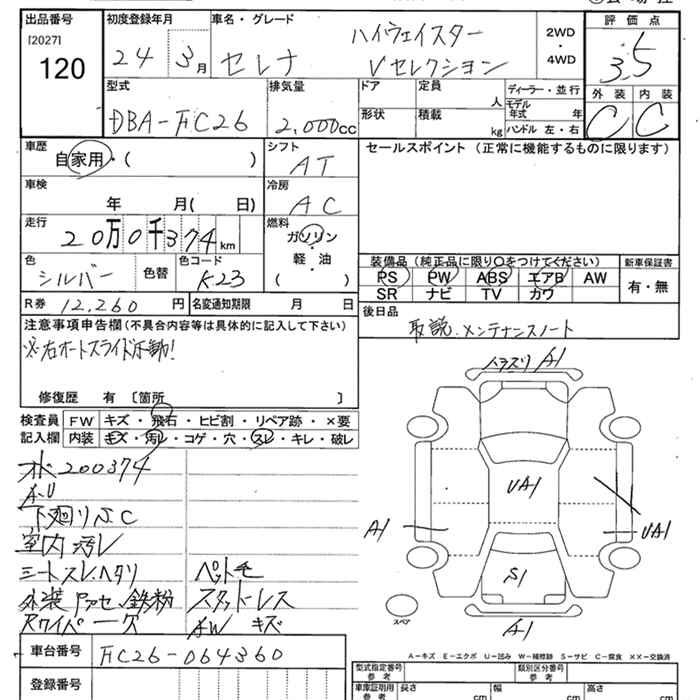 出品番号 初度登録年月 車名・グレード 評価点
[2027]
120
24 3月 セレナ ハイウェイスター Vセレクション
2WD・4WD
3.5
外装 内装
C C
型式 排気量 ドア 定員 人 ディーラー・並行
DBA-FC26 2,000cc 形状 積載 kg モデル年式 年
ハンドル 左・右
車歴 シフト セールスポイント (正常に機能するものに限ります)
自家用・( ) AT
車検 冷房
年 月( 日) AC
走行 燃料
20万0千374km ガソリン・軽油 ( )
色 色替 色コード
シルバー K23
装備品(純正品に限り〇をつけてください) 新車保証書
PS PW ABS エアB AW 有・無
SR ナビ TV カワ
R券 12,260円 名変通知期限 月 日
後日品
取説.メンテナンスノート
注意事項申告欄(不具合内容等は具体的に記入して下さい)
※右オートスライド不動!
修復歴 有 〔箇所 〕
検査員 FW キズ・飛石・ヒビ割・リペア跡・×要
記入欄 内装 キズ・汚レ・コゲ・穴・スレ・キレ・破レ
オド200374
A.U
下廻りS.C
室内汚レ
シートスレ.ヘタリ ペット毛
外装 鉄粉 スタットレス
Rワイパー欠 AW キズ
A1
UA1
A1 UA1
S1
A1
スペア
A-キズ E-エクボ U-凹み W-補修跡 S-サビ C-腐食 ××-交換済
車台番号 FC26-064360
登録番号
型式指定番号 参考 類別区分番号 参考
車庫証明用 参考 長さ cm 幅 cm 高さ cm